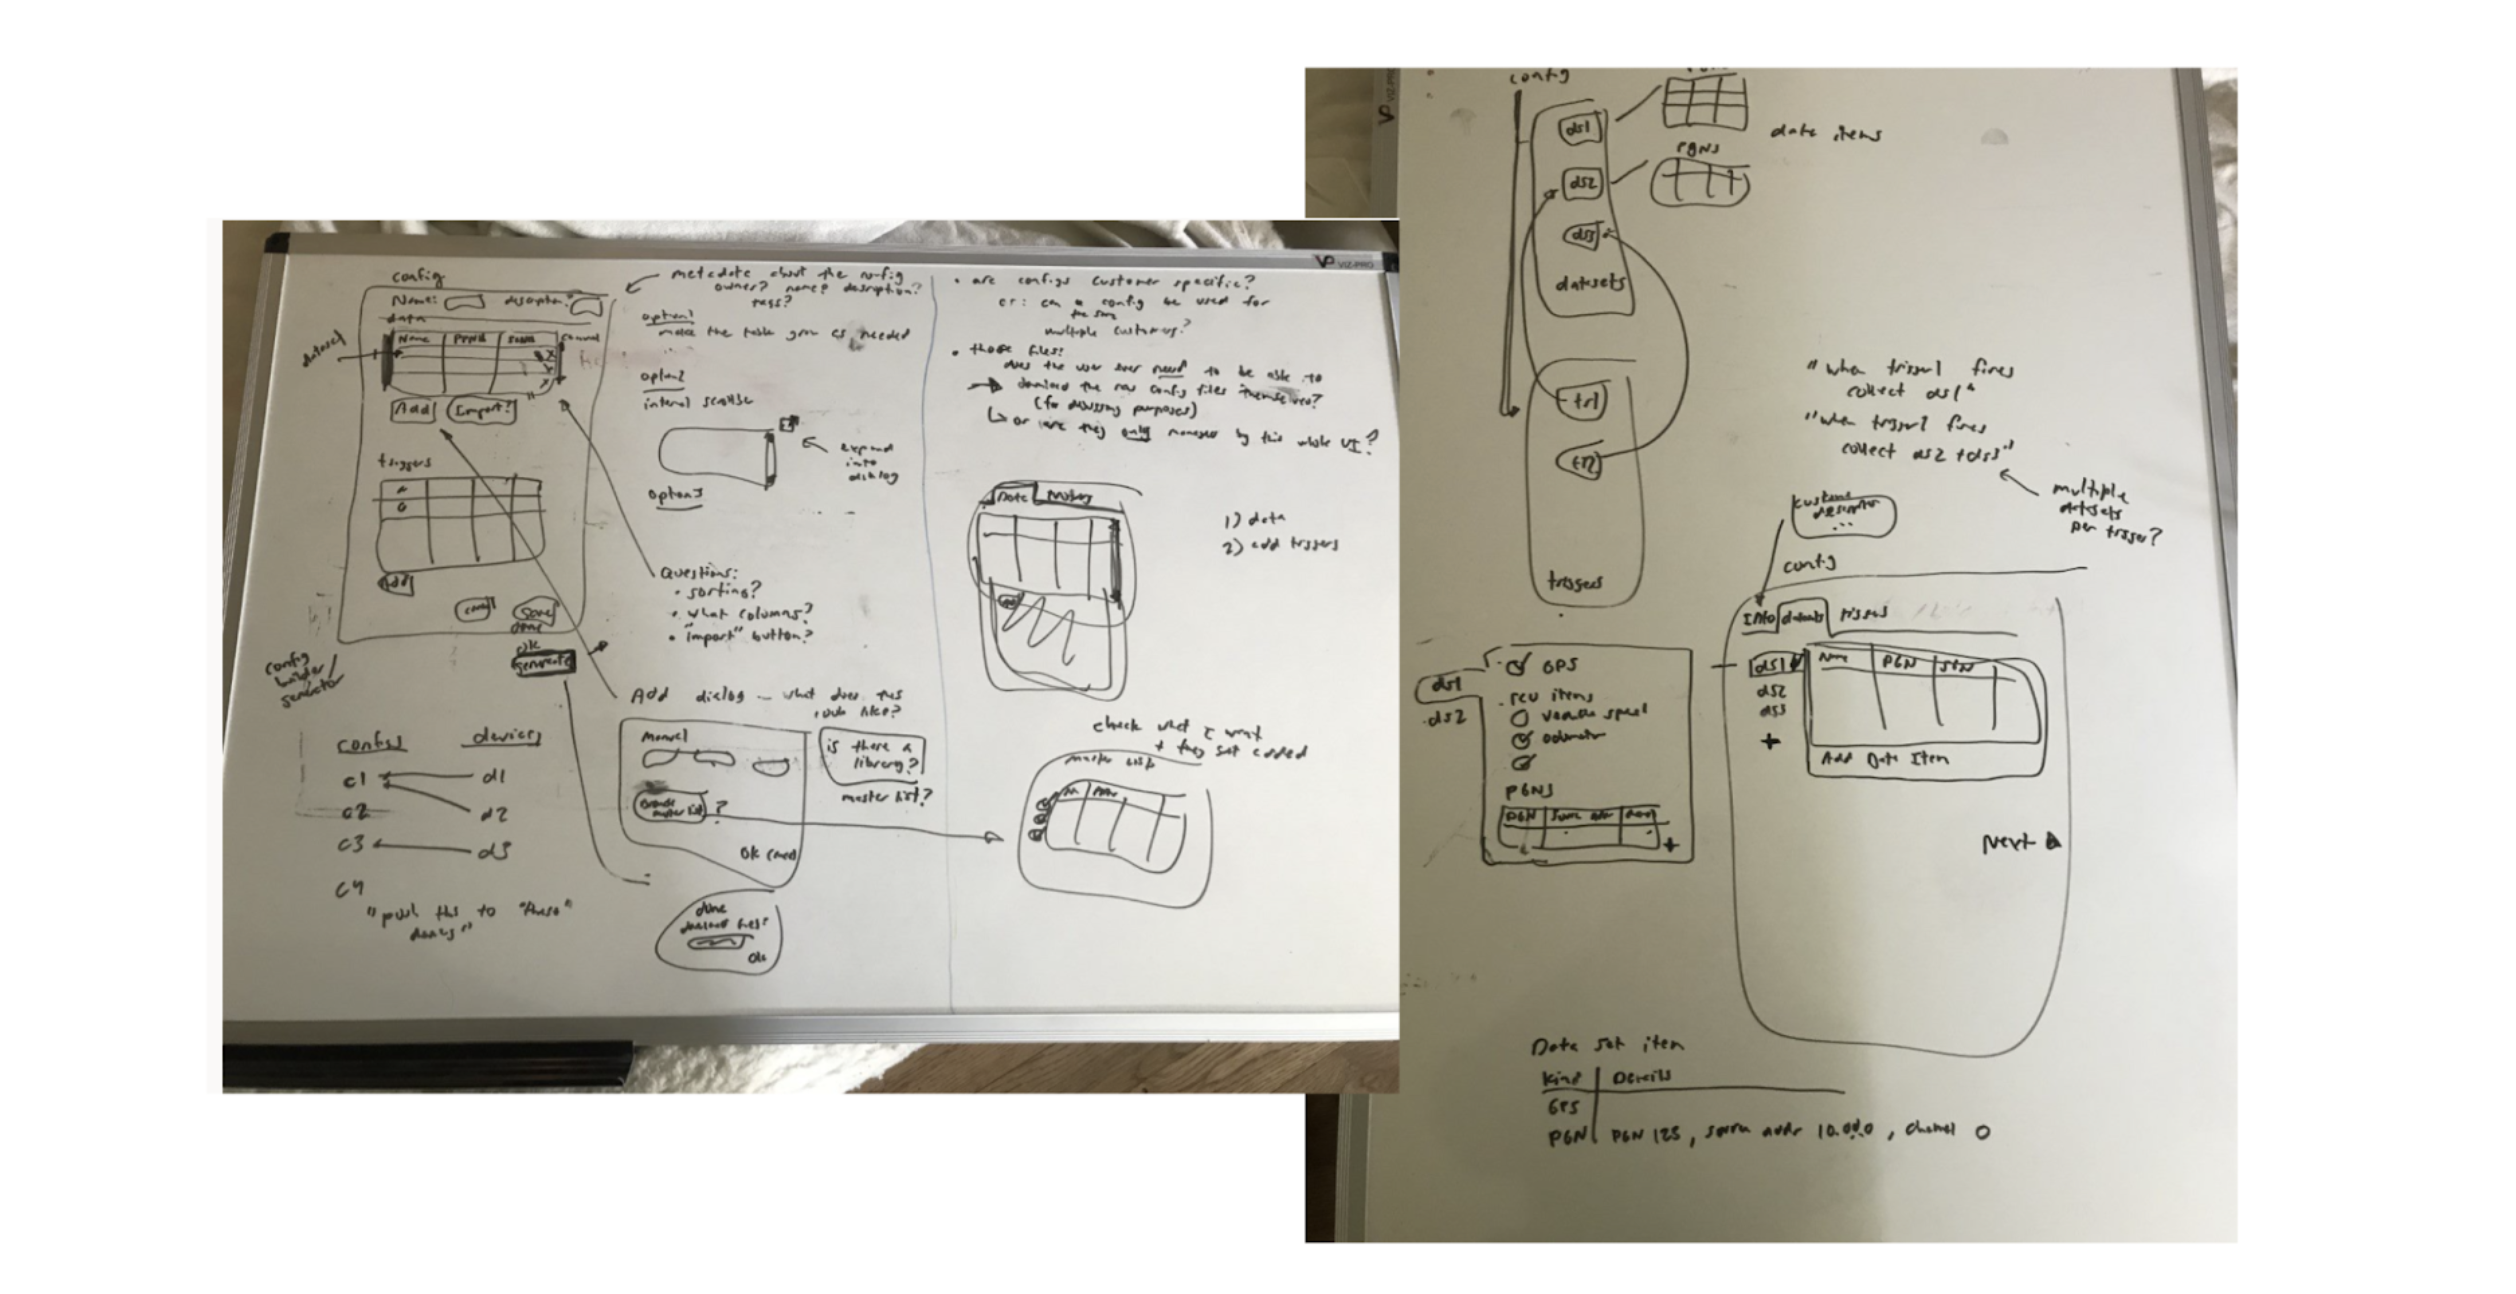 config
Name:
data
Name
Add
Import?
triggers
Add
Save
done
ok
generate
config
builder/
generator
configs devices
c1 d1
c2 d2
c3 d3
c4
"push this to "these"
metadata about the config
owner? name? description?
tags?
option1
make the table grow as needed
option2
internal scrollbar
expand
into
dialog
option3
Questions:
• sorting?
• what columns?
• "import" button?
Add dialog – what does this
look like?
manual
is there a
library?
master list?
?
ok
done
ok
VIZ-PRO
• are configs customer specific?
or: can a config be used for
multiple customers?
• those files:
does the user ever need to be able to
download the raw config files themselves?
purposes)
or are they only managed by this whole UI?
Data
1) data
2) add triggers
check what I want
+ they get added
master list
VIZ-PRO
config
ds1
ds2
ds3
datasets
PGNS
data items
tr1
tr2
triggers
"when trigger1 fires
collect ds1"
"when trigger1 fires
collect ds2 + ds3"
multiple
datasets
per trigger?
...
config
Info datasets triggers
ds1
ds2
ds3
+
Name PGN
Add Data Item
Next
ds1
ds2
GPS
rcu items
vehicle speed
odometer
PGNS
PGN
+
Data set item
Kind Details
GPS
PGN PGN 123, source addr 10.0.0.0, channel 0